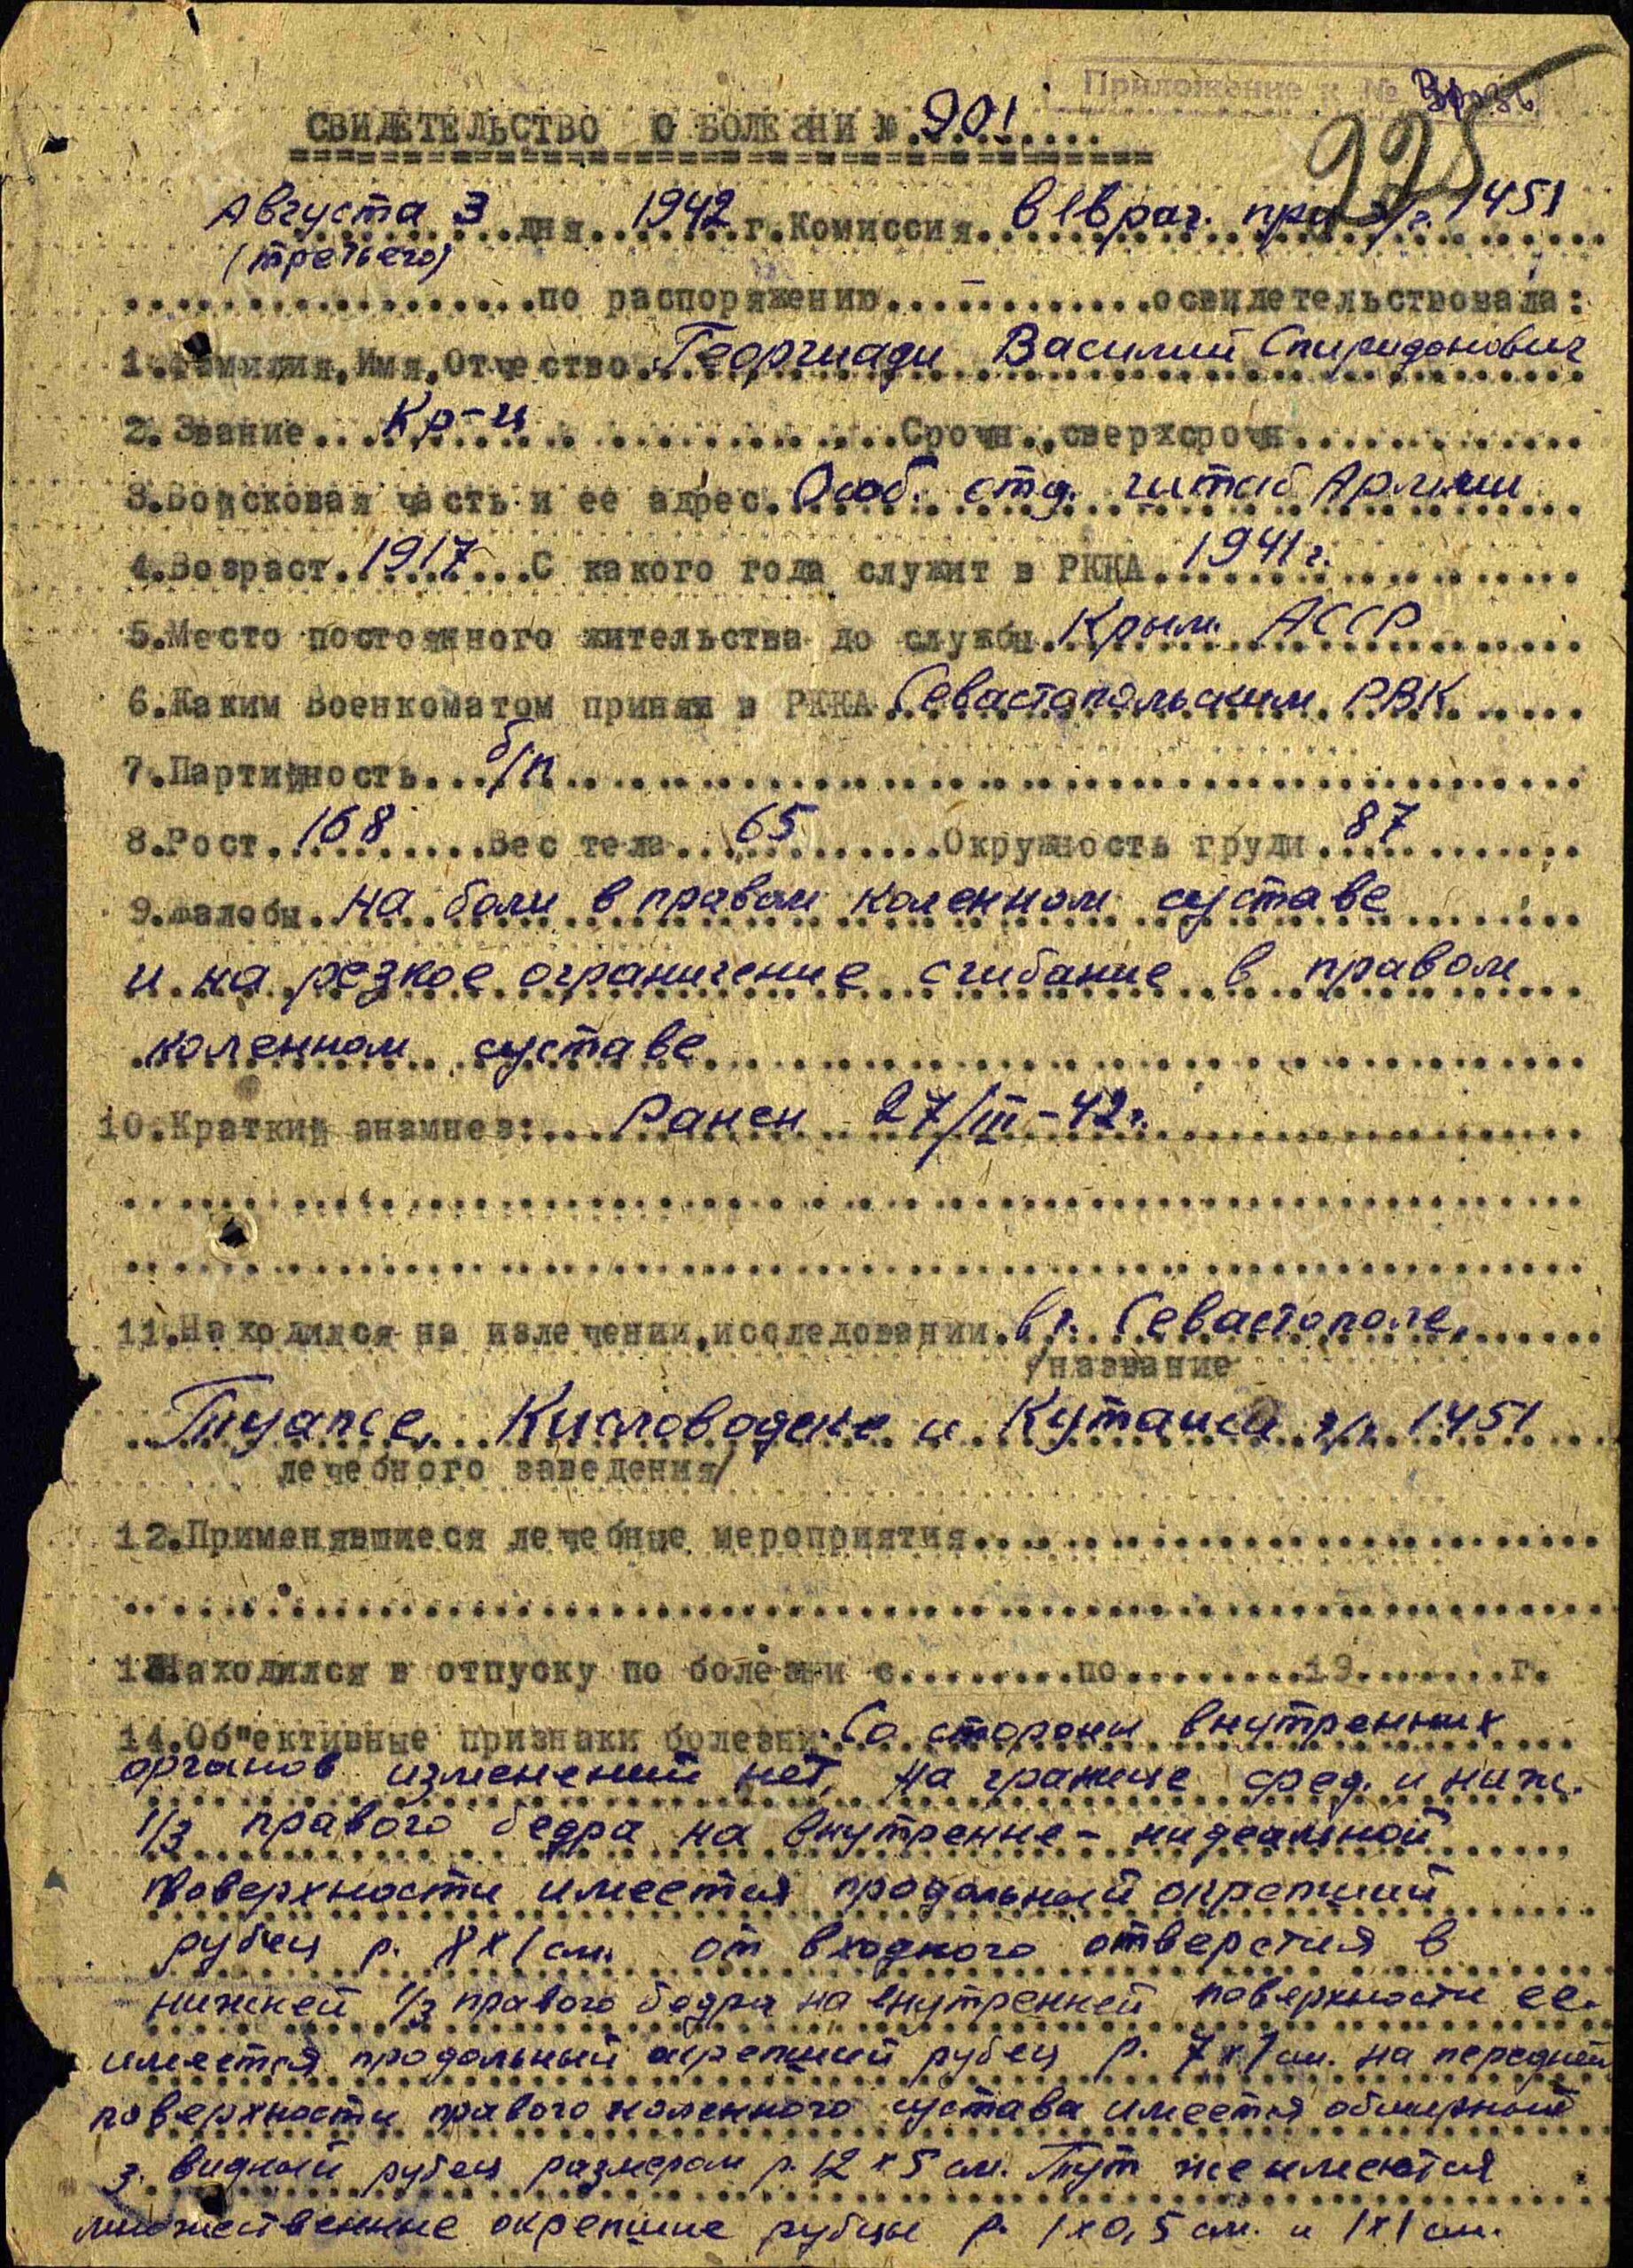 Приложение к №
225
СВИДЕТЕЛЬСТВО О БОЛЕЗНИ № 901
Августа 3 дня 1942 г. Комиссия в/врач. при э/г. 1451
(третьего)
по распоряжению освидетельствовала:
1. Фамилия, Имя, Отчество Георгиади Василий Спиридонович
2. Звание Кр-ц Срочн., сверхсрочн
3. Войсковая часть и ее адрес Особ. отд. штаб Армии
4. Возраст 1917 С какого года служит в РККА 1941 г.
5. Место постоянного жительства до службы Крым. АССР
6. Каким Военкоматом принят в РККА Севастопольским РВК
7. Партийность б/п
8. Рост 168 Вес тела 65 Окружность груди 87
9. Жалобы на боли в правом коленном суставе
и на резкое ограничение сгибание в правом
коленном суставе
10. Краткий анамнез: Ранен 27/III-42 г.
11. Находился на излечении, исследовании в г. Севастополе,
/название
Туапсе, Кисловодске и Кутаиси э/г 1451
лечебного заведения/
12. Применявшиеся лечебные мероприятия
13. Находился в отпуску по болезни с по 19 г.
14. Об"ективные признаки болезни Со стороны внутренних
органов изменений нет, на границе сред. и ниж.
1/3 правого бедра на внутренне-
поверхности имеется продольный окрепший
рубец р. 8х1 см. от входного отверстия в
нижней 1/3 правого бедра на внутренней поверхности ее
имеется продольный окрепший рубец р. 7х1 см. на передней
поверхности правого коленного сустава имеется обширный
з. видный рубец размером р. 12х5 см. Тут же имеются
множественные окрепшие рубцы р. 1х0,5 см. и 1х1 см.